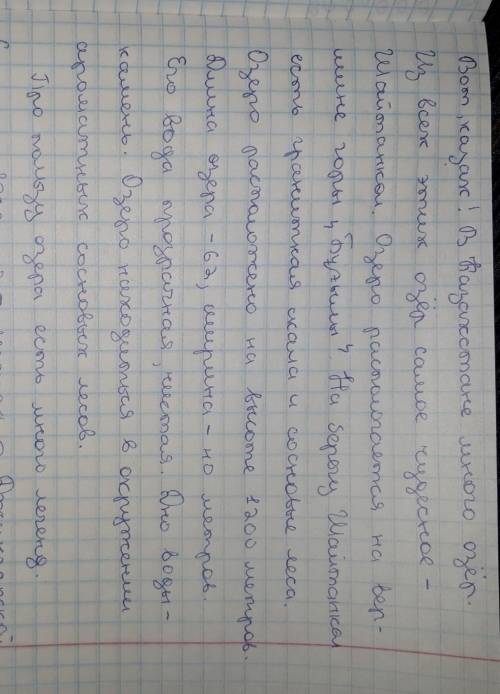 Вот, казах! В Казахстане много озёр.
Из всех этих озёр самое чудесное -
Шайтанкол. Озеро располгается на вер-
шине горы "Бугылы". На берегу Шайтанкол
есть гранитная скала и сосновые леса.
Озеро расположено на высоте 1200 метров.
Длина озера - 62, ширина - 40 метров.
Его вода прозрачная, чистая. Дно воды -
камень. Озеро находиться в окружении
ароматных сосновых лесов.
Про пользу озера есть много легенд.